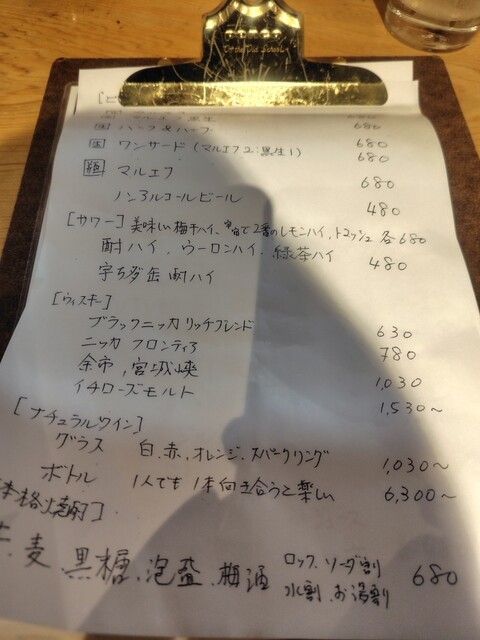 On the Old School
[ビ
マルエフ 黒生 680
生 ハーフ&ハーフ 680
生 ワンサード(マルエフ2:黒生1) 680
680
瓶 マルエフ 680
ノンアルコールビール 480
[サワー] 美味しい梅干ハイ、で2番のレモンハイ、トマッシュ 各680
酎ハイ、ウーロンハイ、緑茶ハイ 480
宇ち多缶酎ハイ
[ウィスキー]
ブラックニッカ リッチブレンド 630
ニッカ フロンティア 780
余市、宮城峡 1,030
イチローズモルト 1,530〜
[ナチュラルワイン]
グラス 白、赤、オレンジ、スパークリング 1,030〜
ボトル 1人でも1本向き合うと楽しい 6,300〜
本格焼酎]
麦、黒糖、泡盛、梅酒 ロック、ソーダ割 680
水割、お湯割